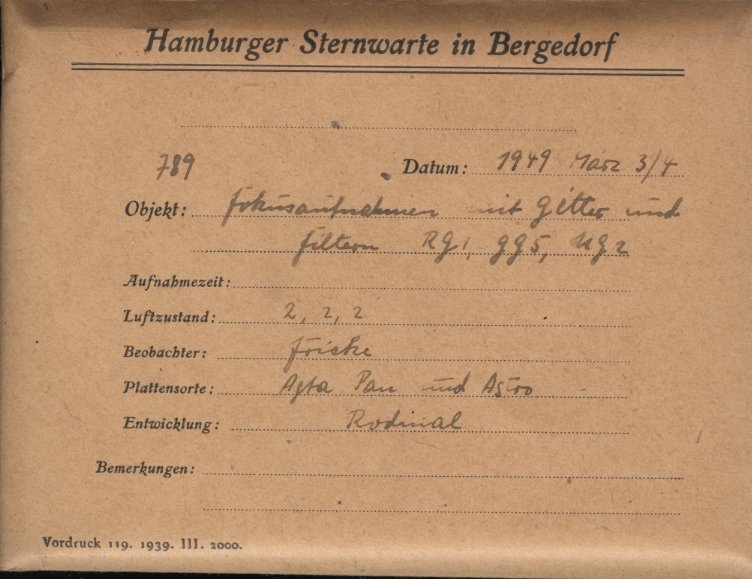 Hamburger Sternwarte in Bergedorf
789 Datum: 1949 März 3/4
Objekt: Fokusaufnahmen mit Gitter und
Filtern RG1, GG5, UG2
Aufnahmezeit:
Luftzustand: 2, 2, 2
Beobachter: Fricke
Plattensorte: Agfa Pan und Astro
Entwicklung: Rodinal
Bemerkungen:
Vordruck 119. 1939. III. 2000.